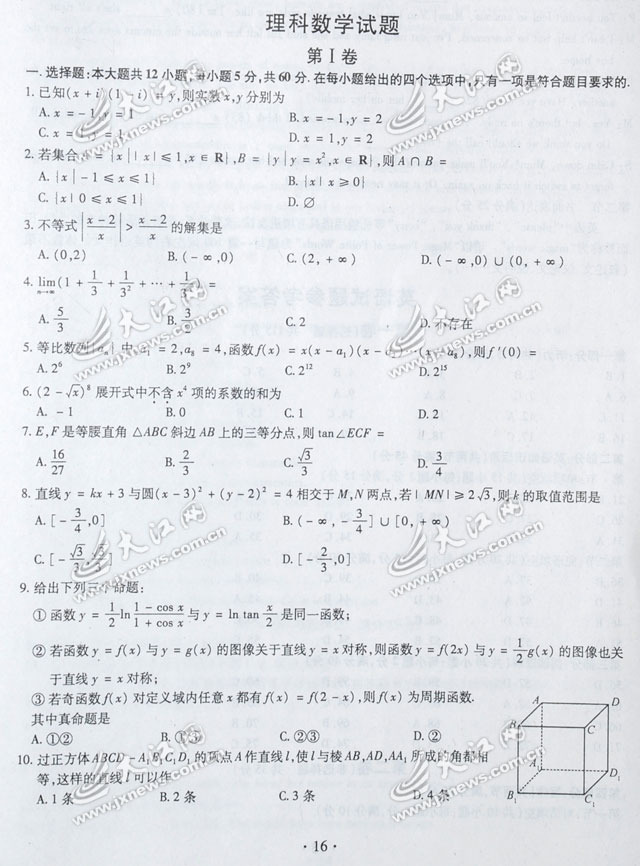 理科数学试题
第Ⅰ卷
一. 选择题:本大题共12小题,每小题5分,共60分. 在每小题给出的四个选项中,只有一项是符合题目要求的.
1. 已知(x + i)(1 - i) = y,则实数x,y分别为
A. x = - 1,y = 1 B. x = - 1,y = 2
C. x = 1,y = 1 D. x = 1,y = 2
2. 若集合A = {x| |x| ⩽ 1,x ∈ R},B = {y|y = x²,x ∈ R},则A ∩ B =
A. {x| - 1 ⩽ x ⩽ 1} B. {x|x ⩾ 0}
C. {x|0 ⩽ x ⩽ 1} D. ∅
3. 不等式|(x - 2)/x| > (x - 2)/x的解集是
A. (0,2) B. ( - ∞,0) C. (2, + ∞) D. ( - ∞,0) ∪ (0, + ∞)
4. lim(n→∞)(1 + 1/3 + 1/3² + ⋯ + ) =
A. 5/3 B. 3/2 C. 2 D. 不存在
5. 等比数列{aₙ}中,a₁ = 2,a₈ = 4,函数f(x) = x(x - a₁)(x - a₂)⋯(x - a₈),则f′(0) =
A. 2⁶ B. 2⁹ C. 2¹² D. 2¹⁵
6. (2 - √x)⁸ 展开式中不含x⁴项的系数的和为
A. - 1 B. 0 C. 1 D. 2
7. E,F是等腰直角△ABC斜边AB上的三等分点,则tan∠ECF =
A. 16/27 B. 2/3 C. √3/3 D. 3/4
8. 直线y = kx + 3与圆(x - 3)² + (y - 2)² = 4相交于M,N两点,若|MN| ⩾ 2√3,则k的取值范围是
A. [ - 3/4,0] B. ( - ∞, - 3/4] ∪ [0, + ∞)
C. [ - √3/3,√3/3] D. [ - 2/3,0]
9. 给出下列三个命题:
①函数y = 1/2 ln (1 - cos x)/(1 + cos x)与y = ln tan x/2是同一函数;
②若函数y = f(x)与y = g(x)的图像关于直线y = x对称,则函数y = f(2x)与y = 1/2 g(x)的图像也关
于直线y = x对称;
③若奇函数f(x)对定义域内任意x都有f(x) = f(2 - x),则f(x)为周期函数.
其中真命题是
A. ①② B. ①③ C. ②③ D. ②
10. 过正方体ABCD - A₁B₁C₁D₁的顶点A作直线l,使l与棱AB,AD,AA₁所成的角都相
等,这样的直线l可以作
A. 1条 B. 2条 C. 3条 D. 4条
A D
B C
A₁ D₁
B₁ C₁
· 16 ·
大江网
www.jxnews.com.cn